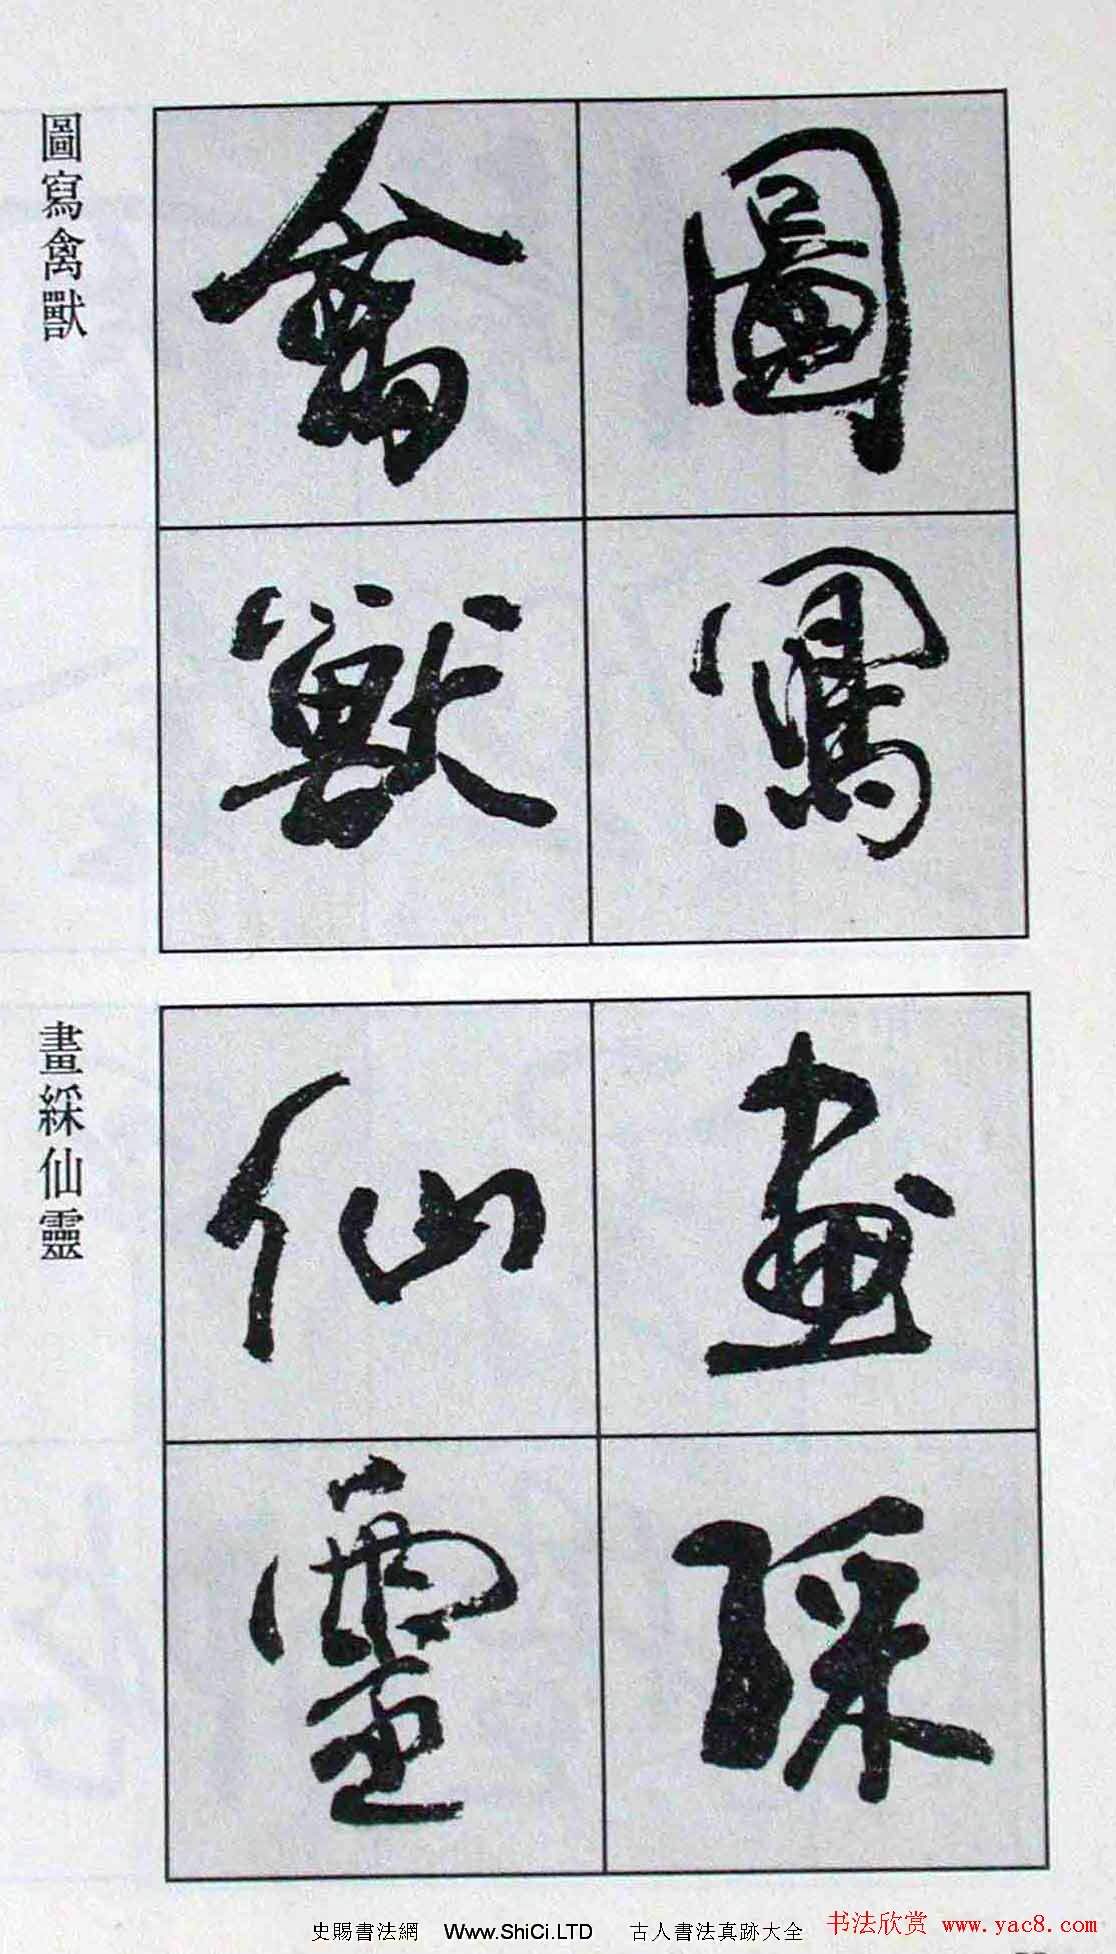 圖寫
禽獸
圖寫禽獸
畫綵
仙靈
畫綵仙靈
史賜書法網 Www.ShiCi.LTD 古人書法真跡大全
书法欣赏 www.yac8.com